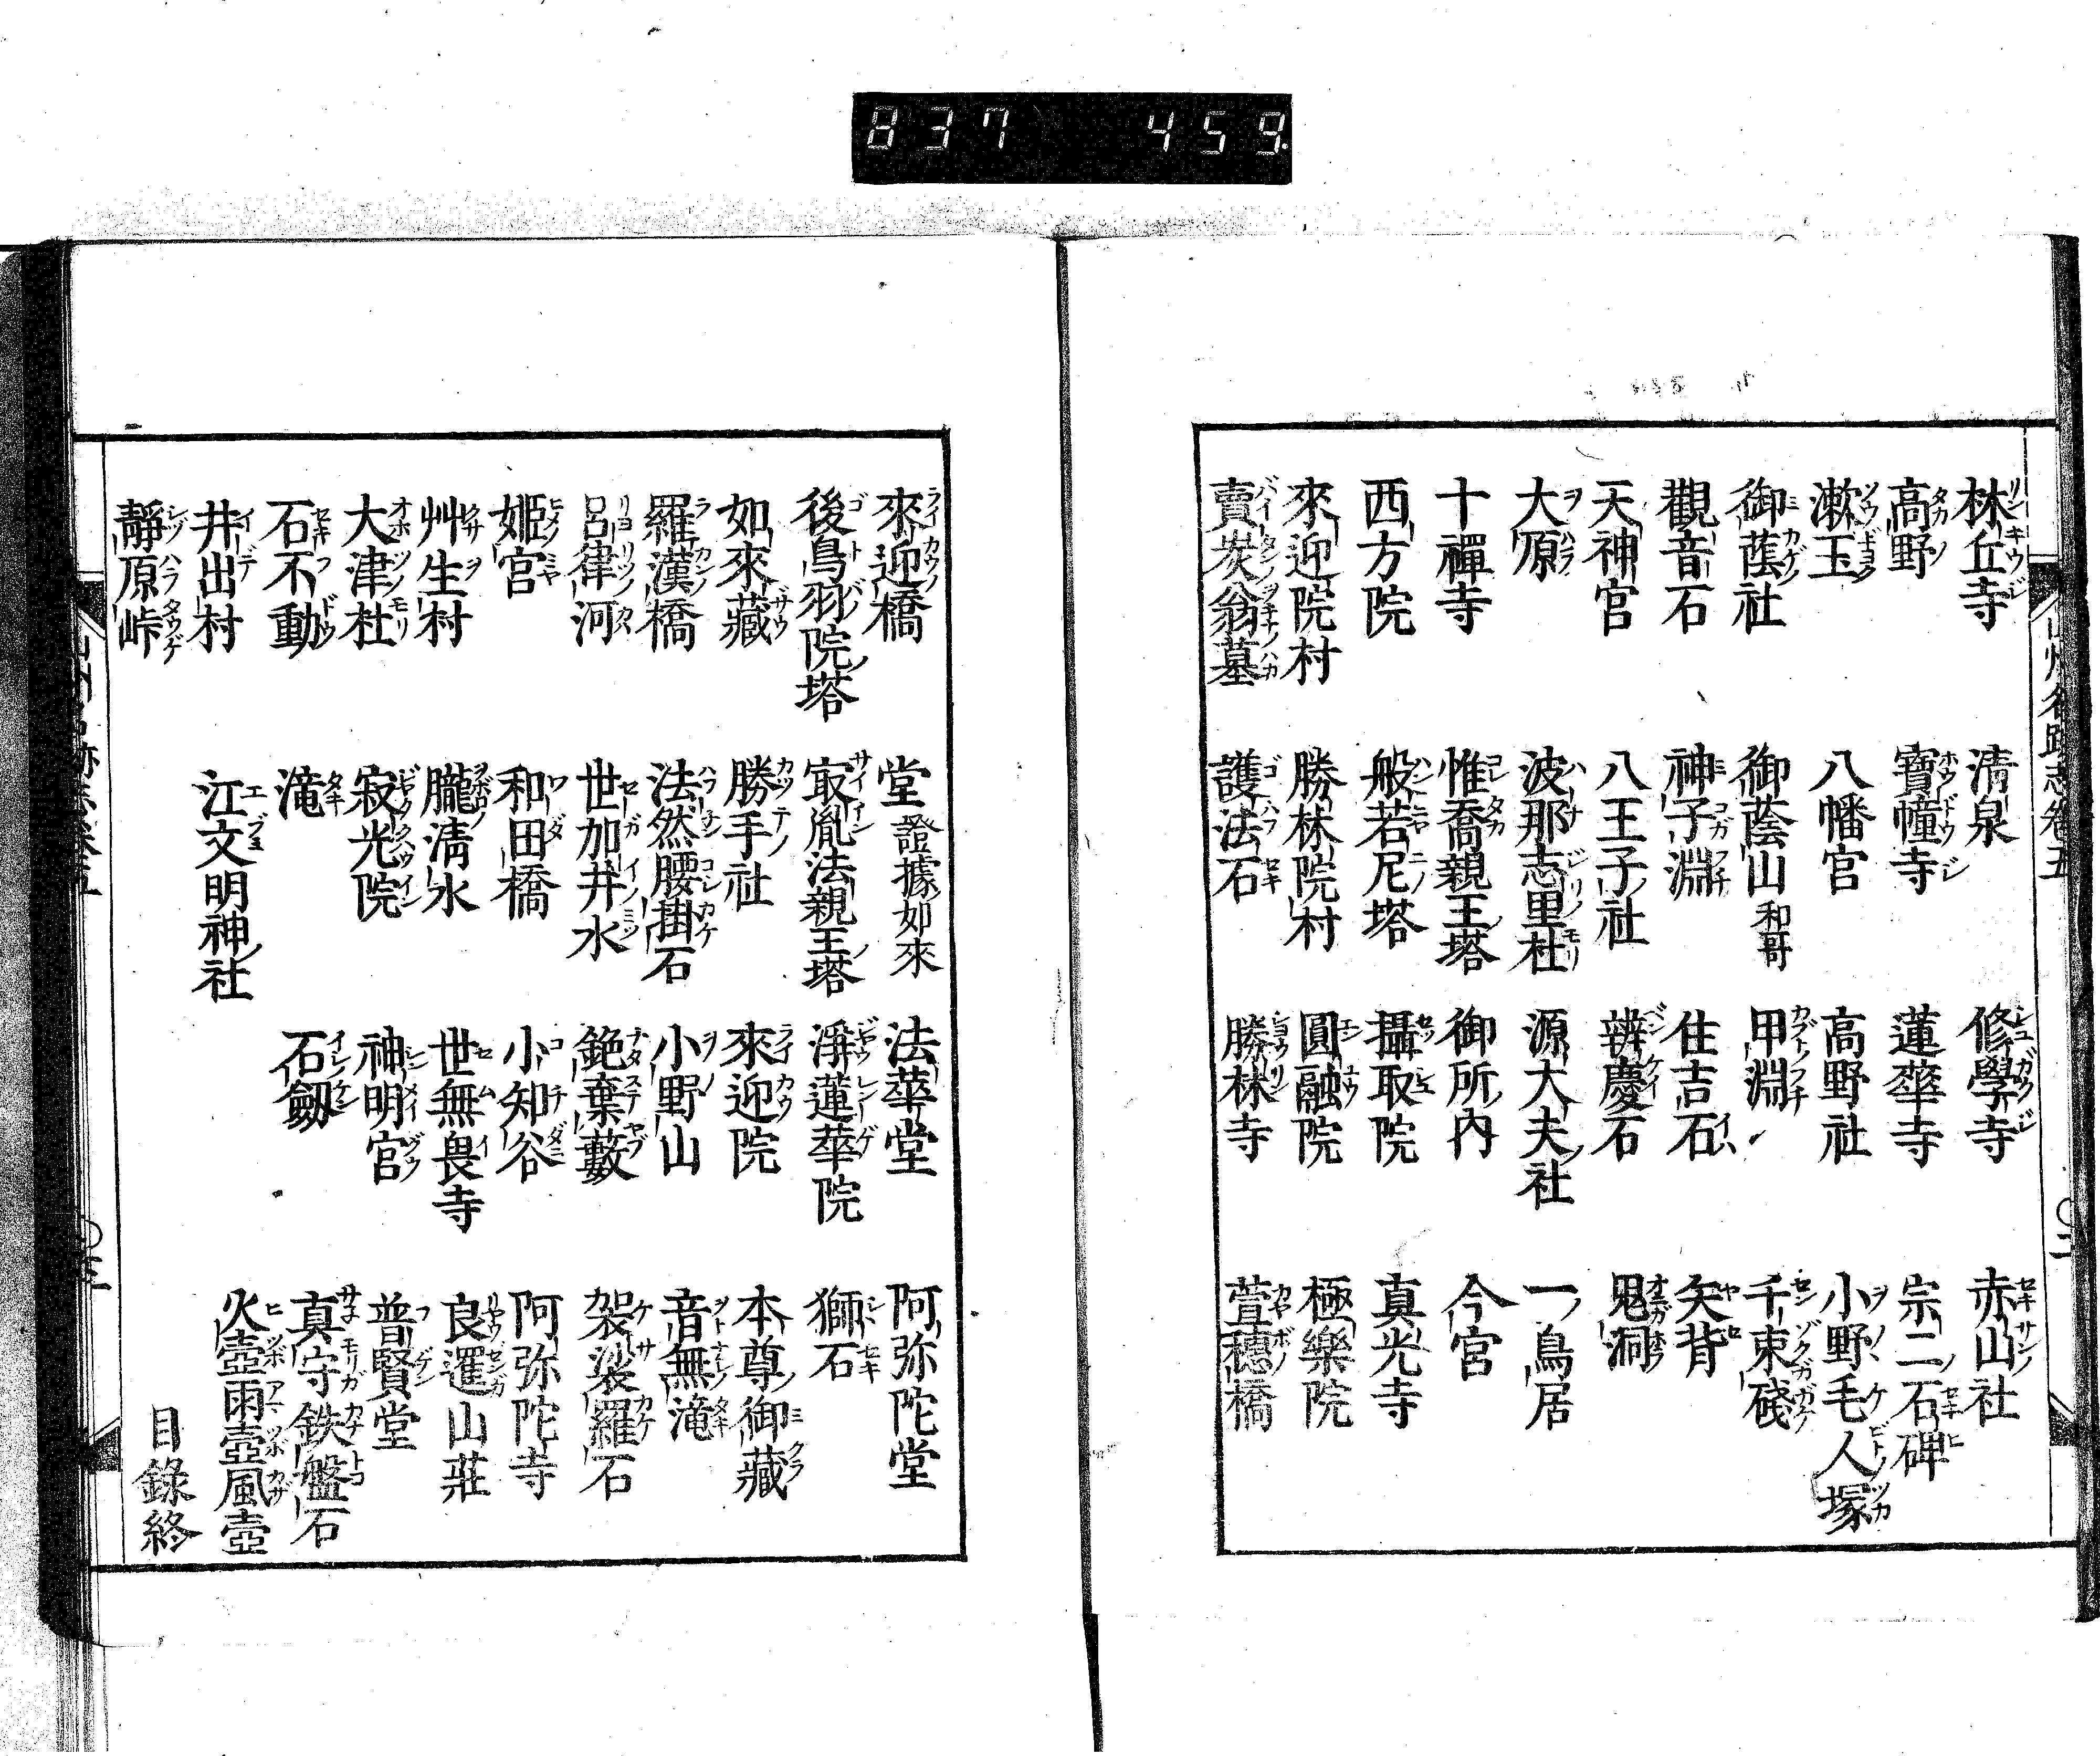 837 459
林丘寺 清泉 修學寺 赤山社
高野 寶幢寺 蓮華寺 宗二石碑
漱玉 八幡宮 高野社 小野毛人塚
御蔭社 御蔭山 和哥 甲淵 千束碊
觀音石 神子淵 住吉石 矢背
天神宮 八王子社 辨慶石 鬼洞
大原 波那志里杜 源大夫社 一鳥居
十禪寺 惟喬親王塔 御所内 今宮
西方院 般若尼塔 攝取院 真光寺
來迎院村 勝林院村 圓融院 極樂院
賣炭翁墓 護法石 勝林寺 萱穗橋
來迎橋 堂 證據如來 法華堂 阿弥陀堂
後鳥羽院塔 㝡胤法親王塔 淨蓮華院 獅石
如來藏 勝手社 來迎院 本尊御藏
羅漢橋 法然腰掛石 小野山 音無滝
呂律河 世加井水 鉋棄藪 袈裟羅石
姬宮 和田橋 小知谷 阿弥陀寺
艸生村 朧清水 世無畏寺 良暹山莊
大津杜 寂光院 神明宮 普賢堂
石不動 滝 石劔 真守鉄盤石
井出村 江文明神社 火壺雨壺風壺
靜原峠 目錄終